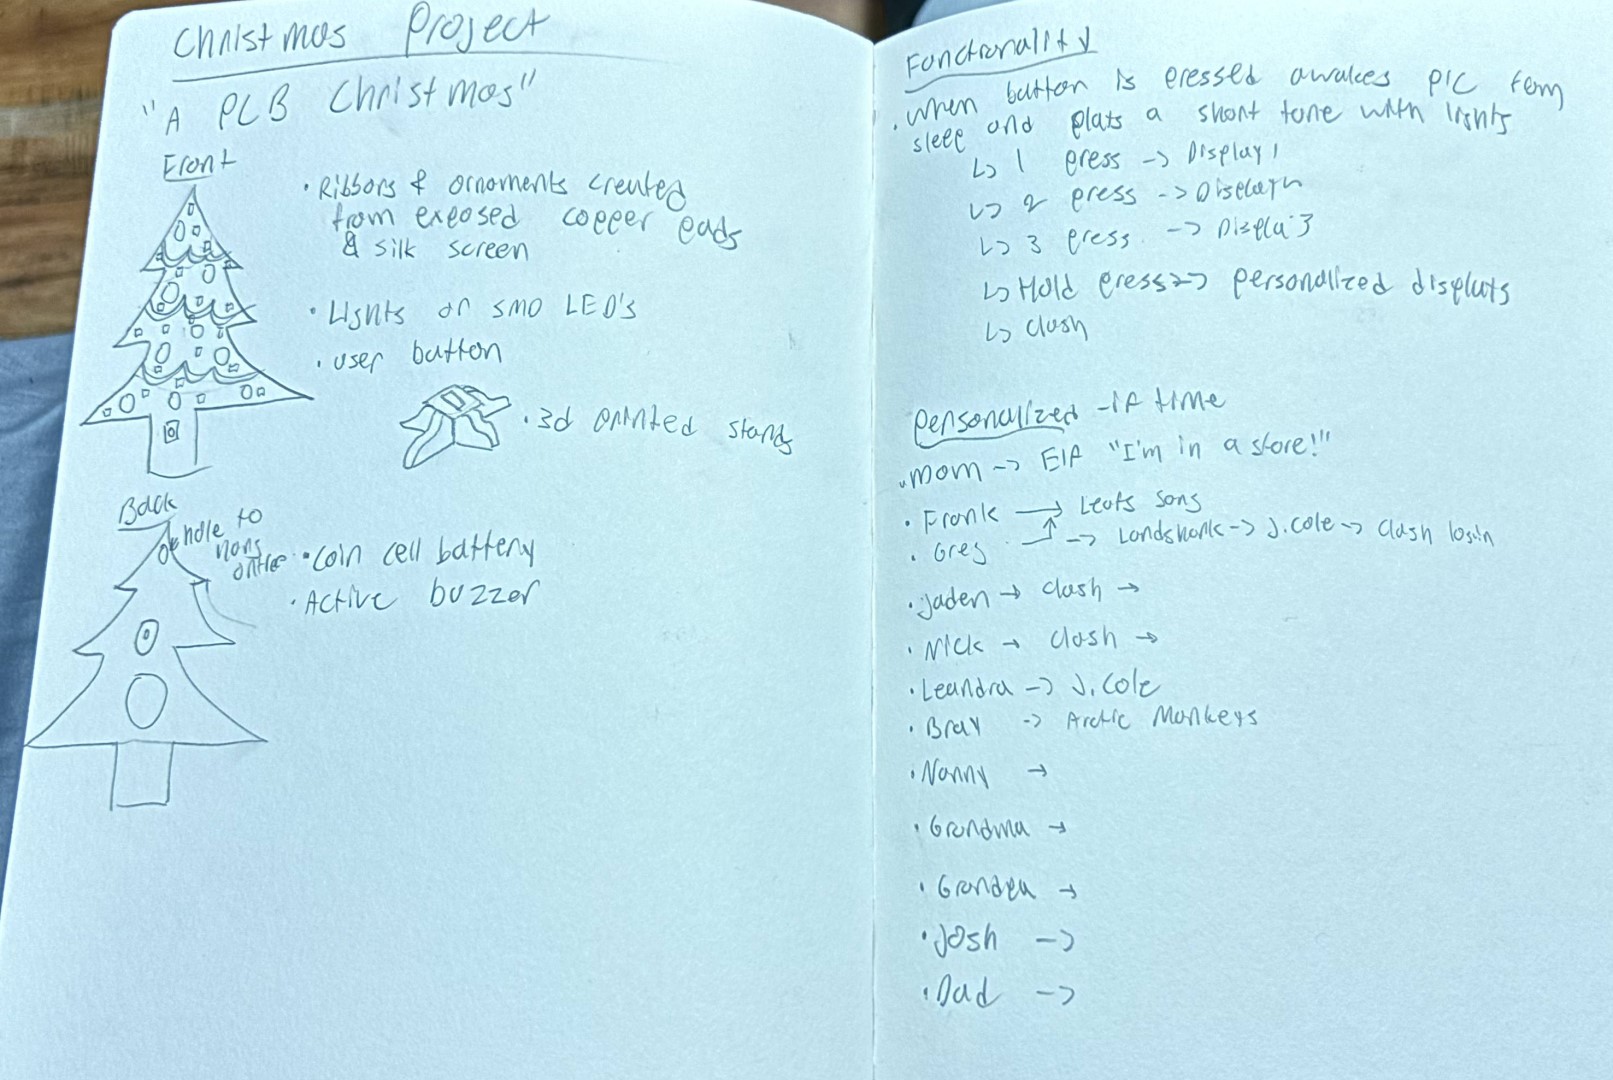 Christmas Project
"A PCB Christmas"
Front
• Ribbons & ornaments created
from exposed copper pads
& silk screen
• Lights or SMD LED's
• user button
• 3d printed stands
Back
hole to
hang
• Coin cell battery
• Active buzzer
Functionality
• when button is pressed awakes PIC fom
sleep and plats a short tone with lights
↳ 1 press -> Display 1
↳ 2 press ->
↳ 3 press -> Displa 3
↳ Hold press -> personalized displats
↳ clash
Personalized - if time
• mom -> Elf "I'm in a store!"
• Frank -> Leafs song
• Greg -> Landshark -> J. Cole -> Clash login
• jaden -> clash ->
• Nick -> clash ->
• Leandra -> J. Cole
• Bray -> Arctic Monkeys
• Nanny ->
• Grandma ->
• Grandpa ->
• Josh ->
• Dad ->